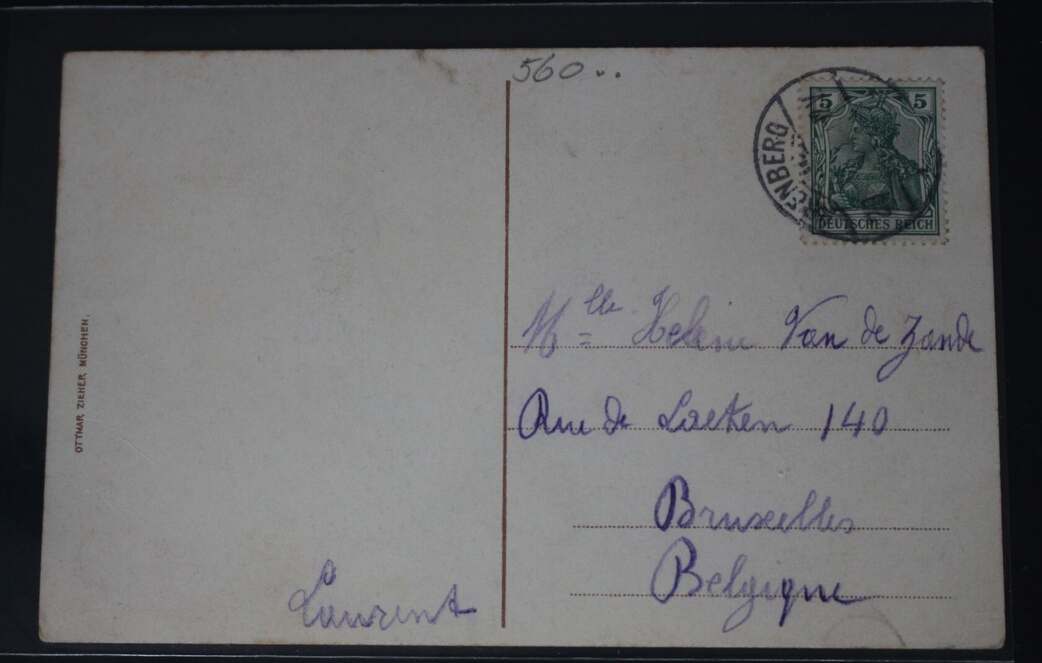 560..
5 5
ENBERG
DEUTSCHES REICH
Mlle Helene Van de Zande
Rue de Laeken 140
Bruxelles
Belgique
Laurent
OTTMAR ZIEHER, MÜNCHEN.